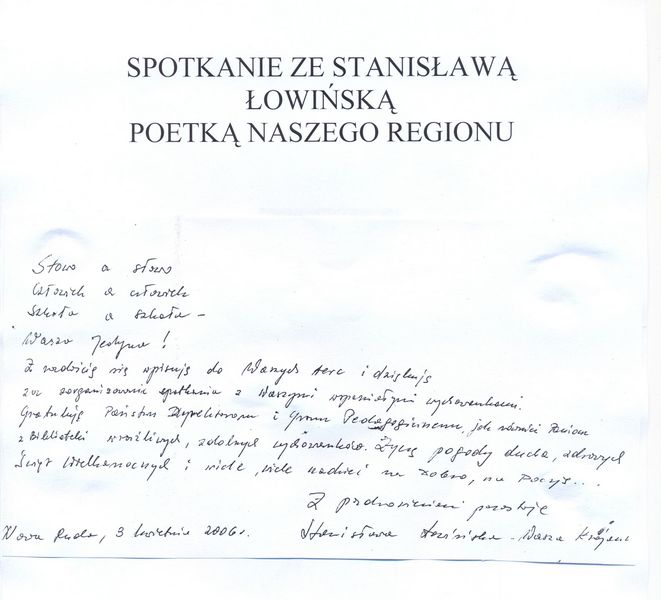 SPOTKANIE ZE STANISŁAWĄ
ŁOWIŃSKĄ
POETKĄ NASZEGO REGIONU
Słowo a słowo
Człowiek a człowiek
Szkoła a szkoła –
Wasza Jedyna!
Z radością się wpisuję do Waszych serc i dziękuję
za zorganizowanie spotkania z Waszymi wspaniałymi wychowankami.
Gratuluję Państwu Dyrektorom i Gronu Pedagogicznemu, jak również Paniom
z Biblioteki wrażliwych, zdolnych wychowanków. Życzę pogody ducha, zdrowych
Świąt Wielkanocnych i wiele, wiele nadziei na Dobro, na
Z pozostaje
Nowa Ruda, 3 kwietnia 2006 r. Stanisława Łowińska - Wasza